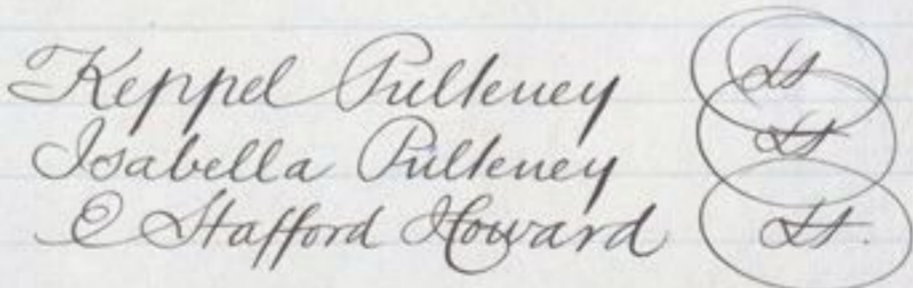 Keppel Pulteney LS
Isabella Pulteney LS
E Stafford Howard LS.